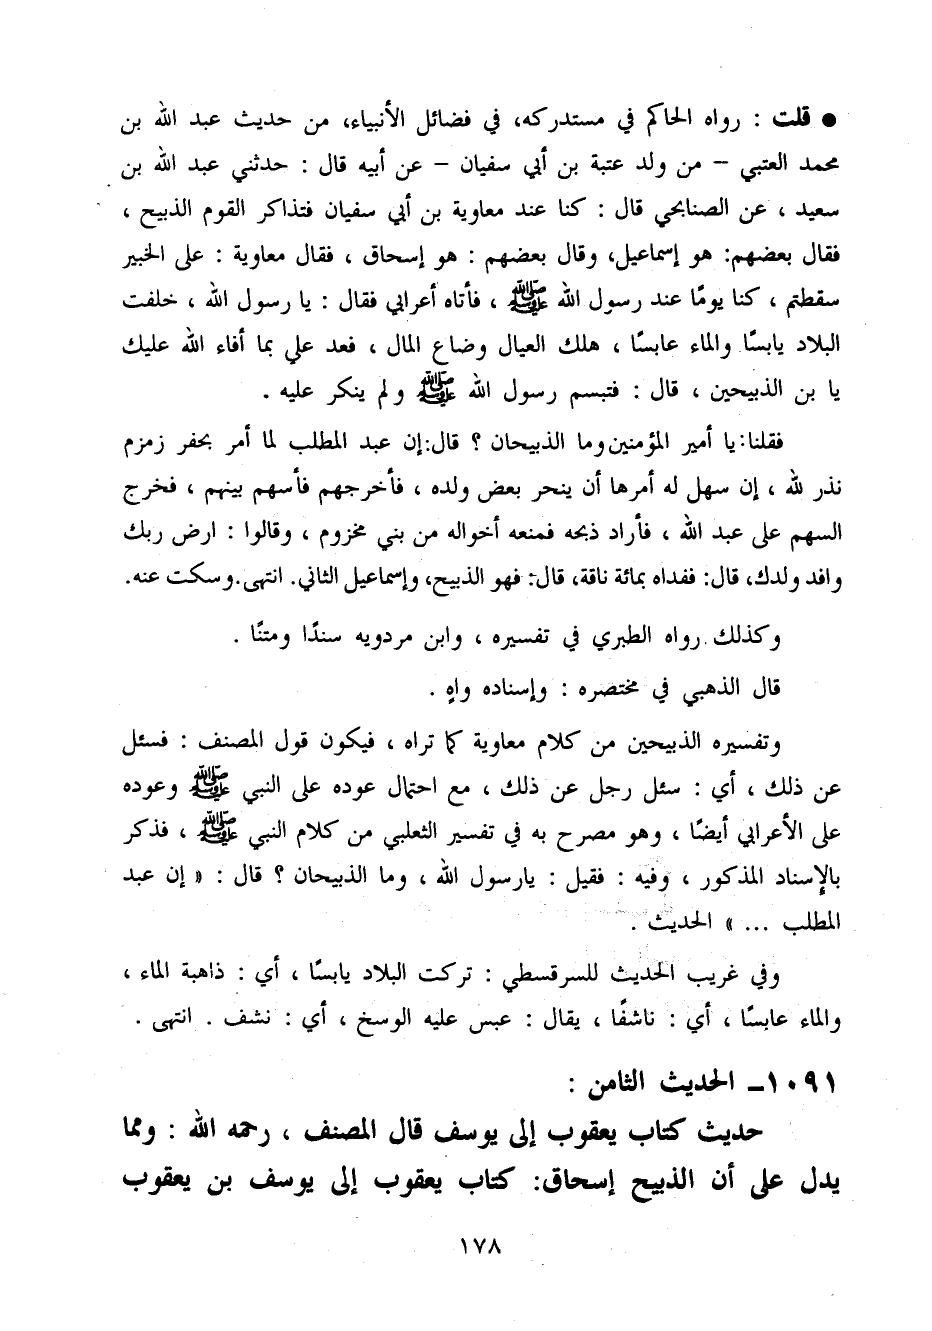 ● قلت : رواه الحاكم في مستدركه، في فضائل الأنبياء، من حديث عبد الله بن
محمد العتبي – من ولد عتبة بن أبي سفيان – عن أبيه قال : حدثني عبد الله بن
سعيد ، عن الصنابحي قال : كنا عند معاوية بن أبي سفيان فتذاكر القوم الذبيح ،
فقال بعضهم: هو إسماعيل، وقال بعضهم : هو إسحاق ، فقال معاوية : على الخبير
سقطتم ، كنا يومًا عند رسول الله ﷺ ، فأتاه أعرابي فقال : يا رسول الله ، خلفت
البلاد يابسًا والماء عابسًا ، هلك العيال وضاع المال ، فعد علي بما أفاء الله عليك
يا بن الذبيحين ، قال : فتبسم رسول الله ﷺ ولم ينكر عليه .
فقلنا: يا أمير المؤمنين وما الذبيحان ؟ قال: إن عبد المطلب لما أمر بحفر زمزم
نذر لله ، إن سهل له أمرها أن ينحر بعض ولده ، فأخرجهم فأسهم بينهم ، فخرج
السهم على عبد الله ، فأراد ذبحه فمنعه أخواله من بني مخزوم ، وقالوا : ارض ربك
وافد ولدك، قال: ففداه بمائة ناقة، قال: فهو الذبيح، وإسماعيل الثاني. انتهى. وسكت عنه.
وكذلك رواه الطبري في تفسيره ، وابن مردويه سندًا ومتنًا .
قال الذهبي في مختصره : وإسناده واهٍ .
وتفسيره الذبيحين من كلام معاوية كما تراه ، فيكون قول المصنف : فسئل
عن ذلك ، أي : سئل رجل عن ذلك ، مع احتمال عوده على النبي ﷺ وعوده
على الأعرابي أيضًا ، وهو مصرح به في تفسير الثعلبي من كلام النبي ﷺ ، فذكر
بالإسناد المذكور ، وفيه : فقيل : يارسول الله ، وما الذبيحان ؟ قال : « إن عبد
المطلب ... » الحديث .
وفي غريب الحديث للسرقسطي : تركت البلاد يابسًا ، أي : ذاهبة الماء ،
والماء عابسًا ، أي : ناشفًا ، يقال : عبس عليه الوسخ ، أي : نشف . انتهى .
١٠٩١ـ الحديث الثامن :
حديث كتاب يعقوب إلى يوسف قال المصنف ، رحمه الله : ومما
يدل على أن الذبيح إسحاق: كتاب يعقوب إلى يوسف بن يعقوب
١٧٨